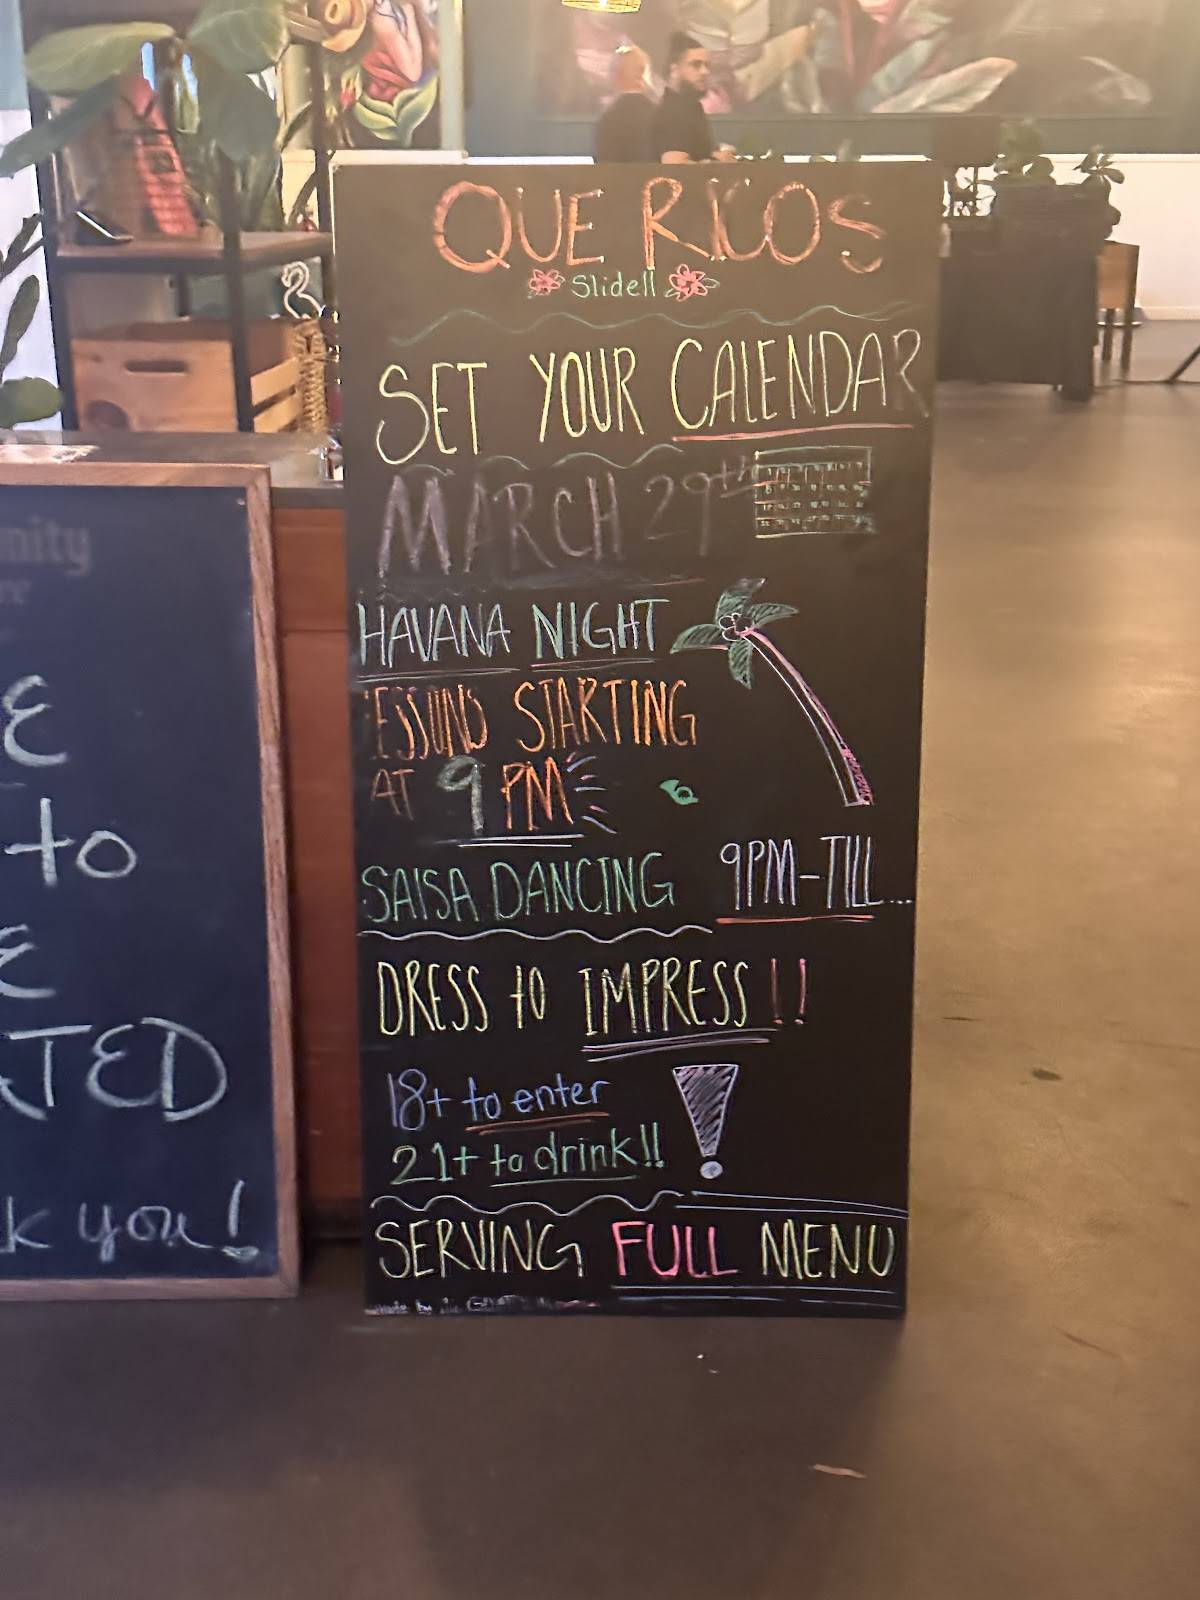 QUE RICOS
Slidell
SET YOUR CALENDAR
MARCH 29th
HAVANA NIGHT
ESSUNS STARTING
AT 9 PM
SALSA DANCING 9PM-TILL...
DRESS to IMPRESS!!
18+ to enter
21+ to drink!!
SERVING FULL MENU
made by
nity
E
to
E
TED
k you!